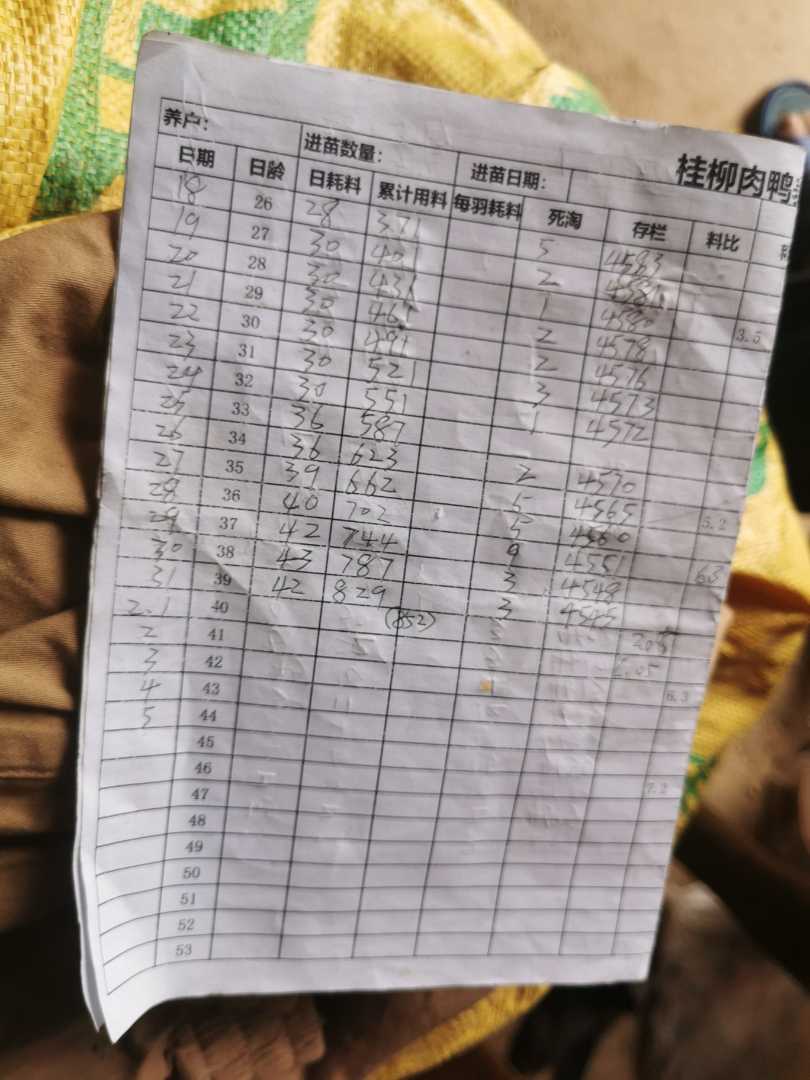 桂柳肉鸭
养户: 进苗数量: 进苗日期:
日期 日龄 日耗料 累计用料 每羽耗料 死淘 存栏 料比
18 26 28 371 5 4583
19 27 30 401 2 4581
20 28 30 431 1 4580 3.5
21 29 30 461 2 4578
22 30 30 491 2 4576
23 31 30 521 3 4573
24 32 30 551 1 4572
25 33 36 587
26 34 36 623 2 4570
27 35 39 662 5 4565 5.2
28 36 40 702 5 4560
29 37 42 744 9 4551
30 38 43 787 3 4548
31 39 42 829 3 4545
2.1 40 (852)
2 41
3 42 6.3
4 43
5 44
45
46 7.2
47
48
49
50
51
52
53